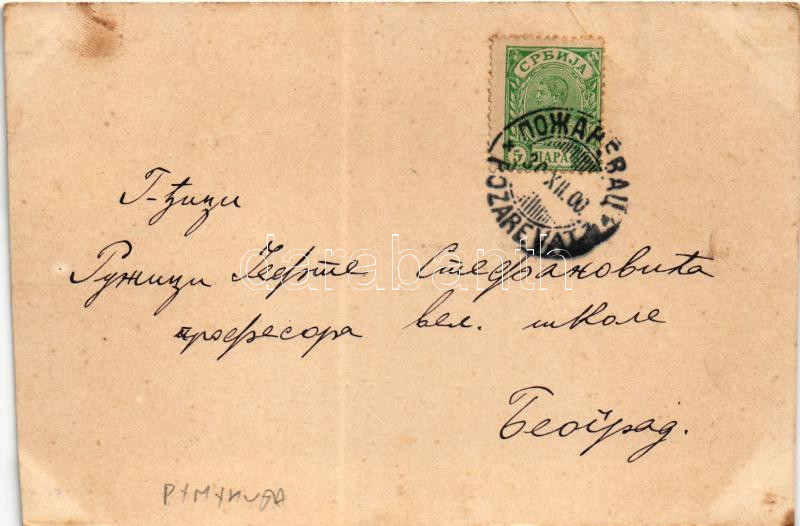 СРБИЈА
5 ПАРА
ПОЖАРЕВАЦ
XII.00
POŽAREVATZ
Г-ђици
Ружици Чефте Стефановића
професора вел. школе
Београд.
darabanth